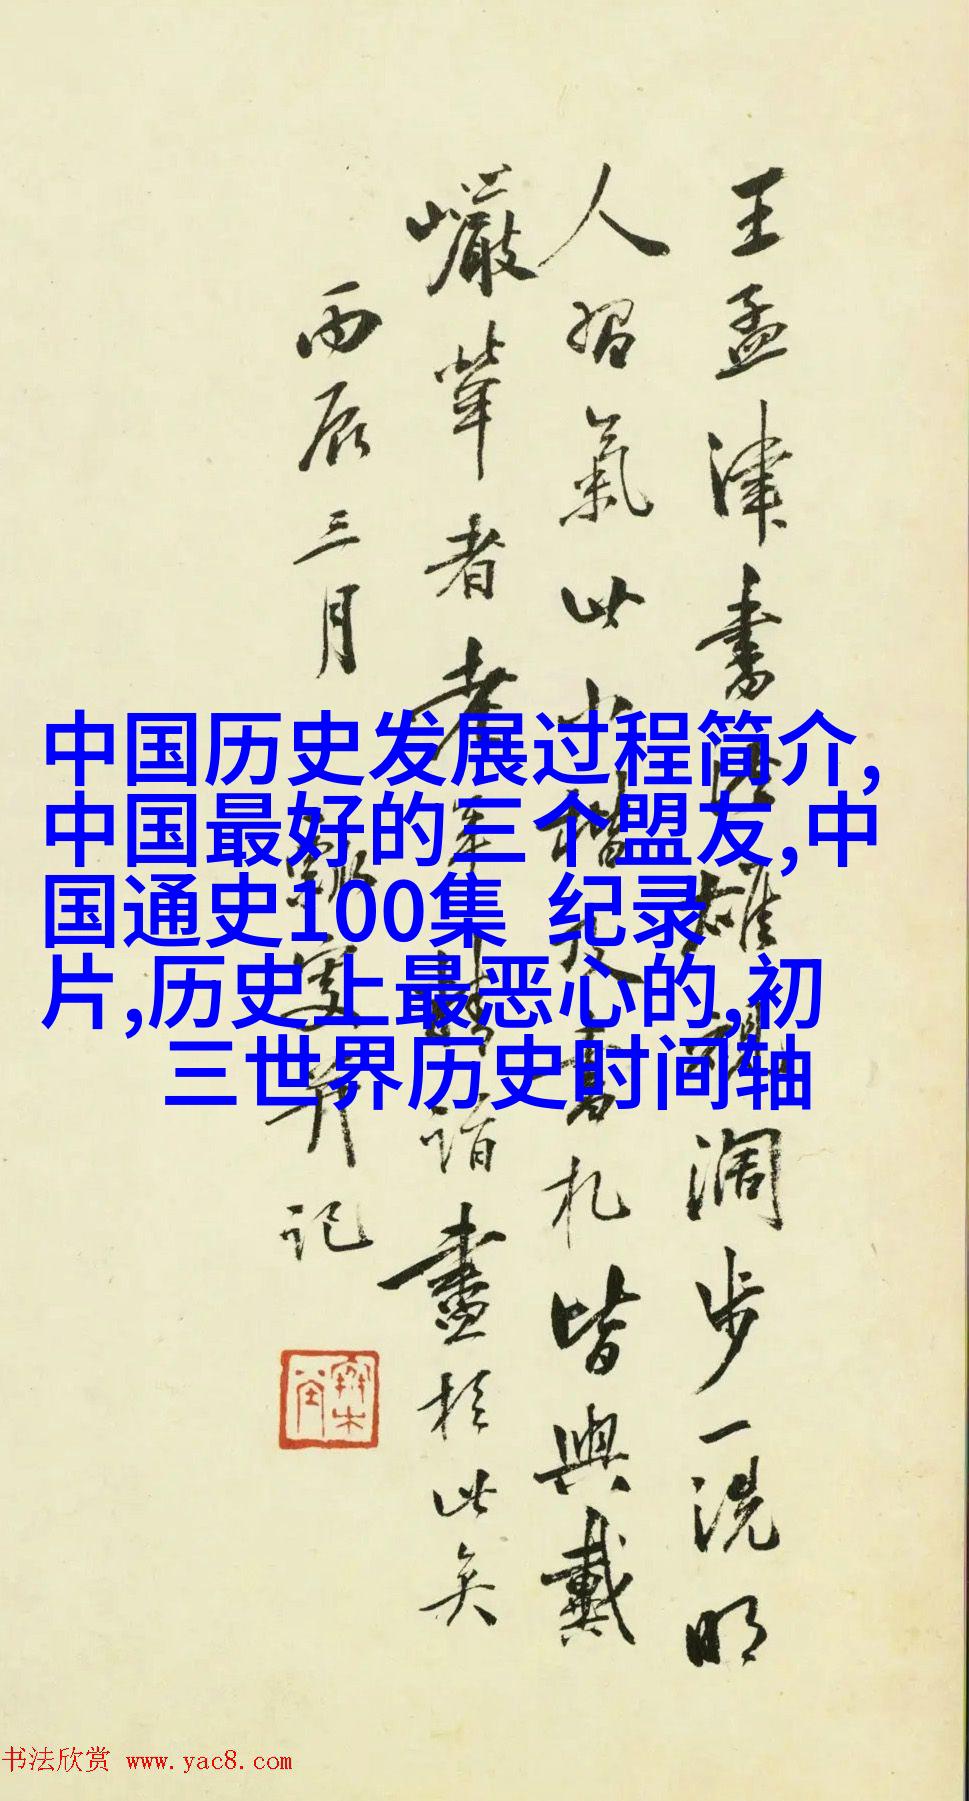 王孟津書法雄視闊步一洗明
人習氣此小楷及書札皆與戴
巖犖者老年精詣盡於此矣
丙辰三月 并記
中国历史发展过程简介,
中国最好的三个盟友,中
国通史100集 纪录
片,历史上最恶心的,初
三世界历史时间轴
书法欣赏 www.yac8.com